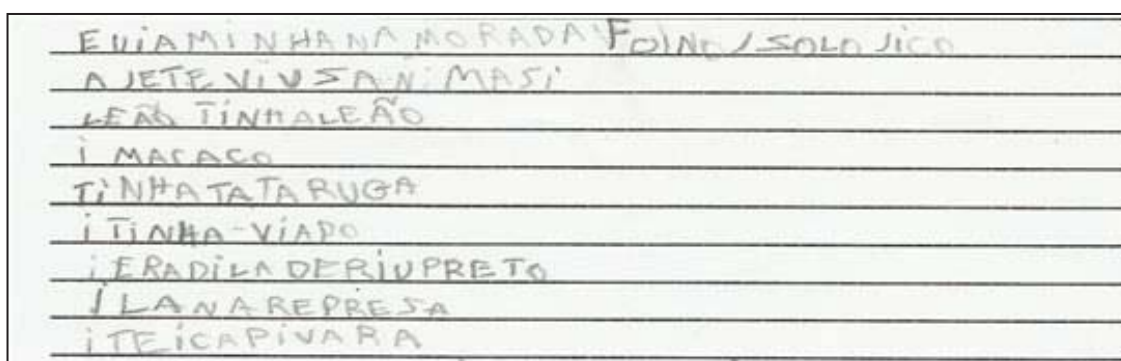 EUIAMINHANAMORADA FOINO JSOLOJICO
AJETEVIUSANiMASi
LEÃO TINHALEÃO
i MACACO
TiNHATATARUGA
i TiNHA-VIADO
iERADiLADERiUPRETO
iLANAREPRESA
iTEiCAPiVARA